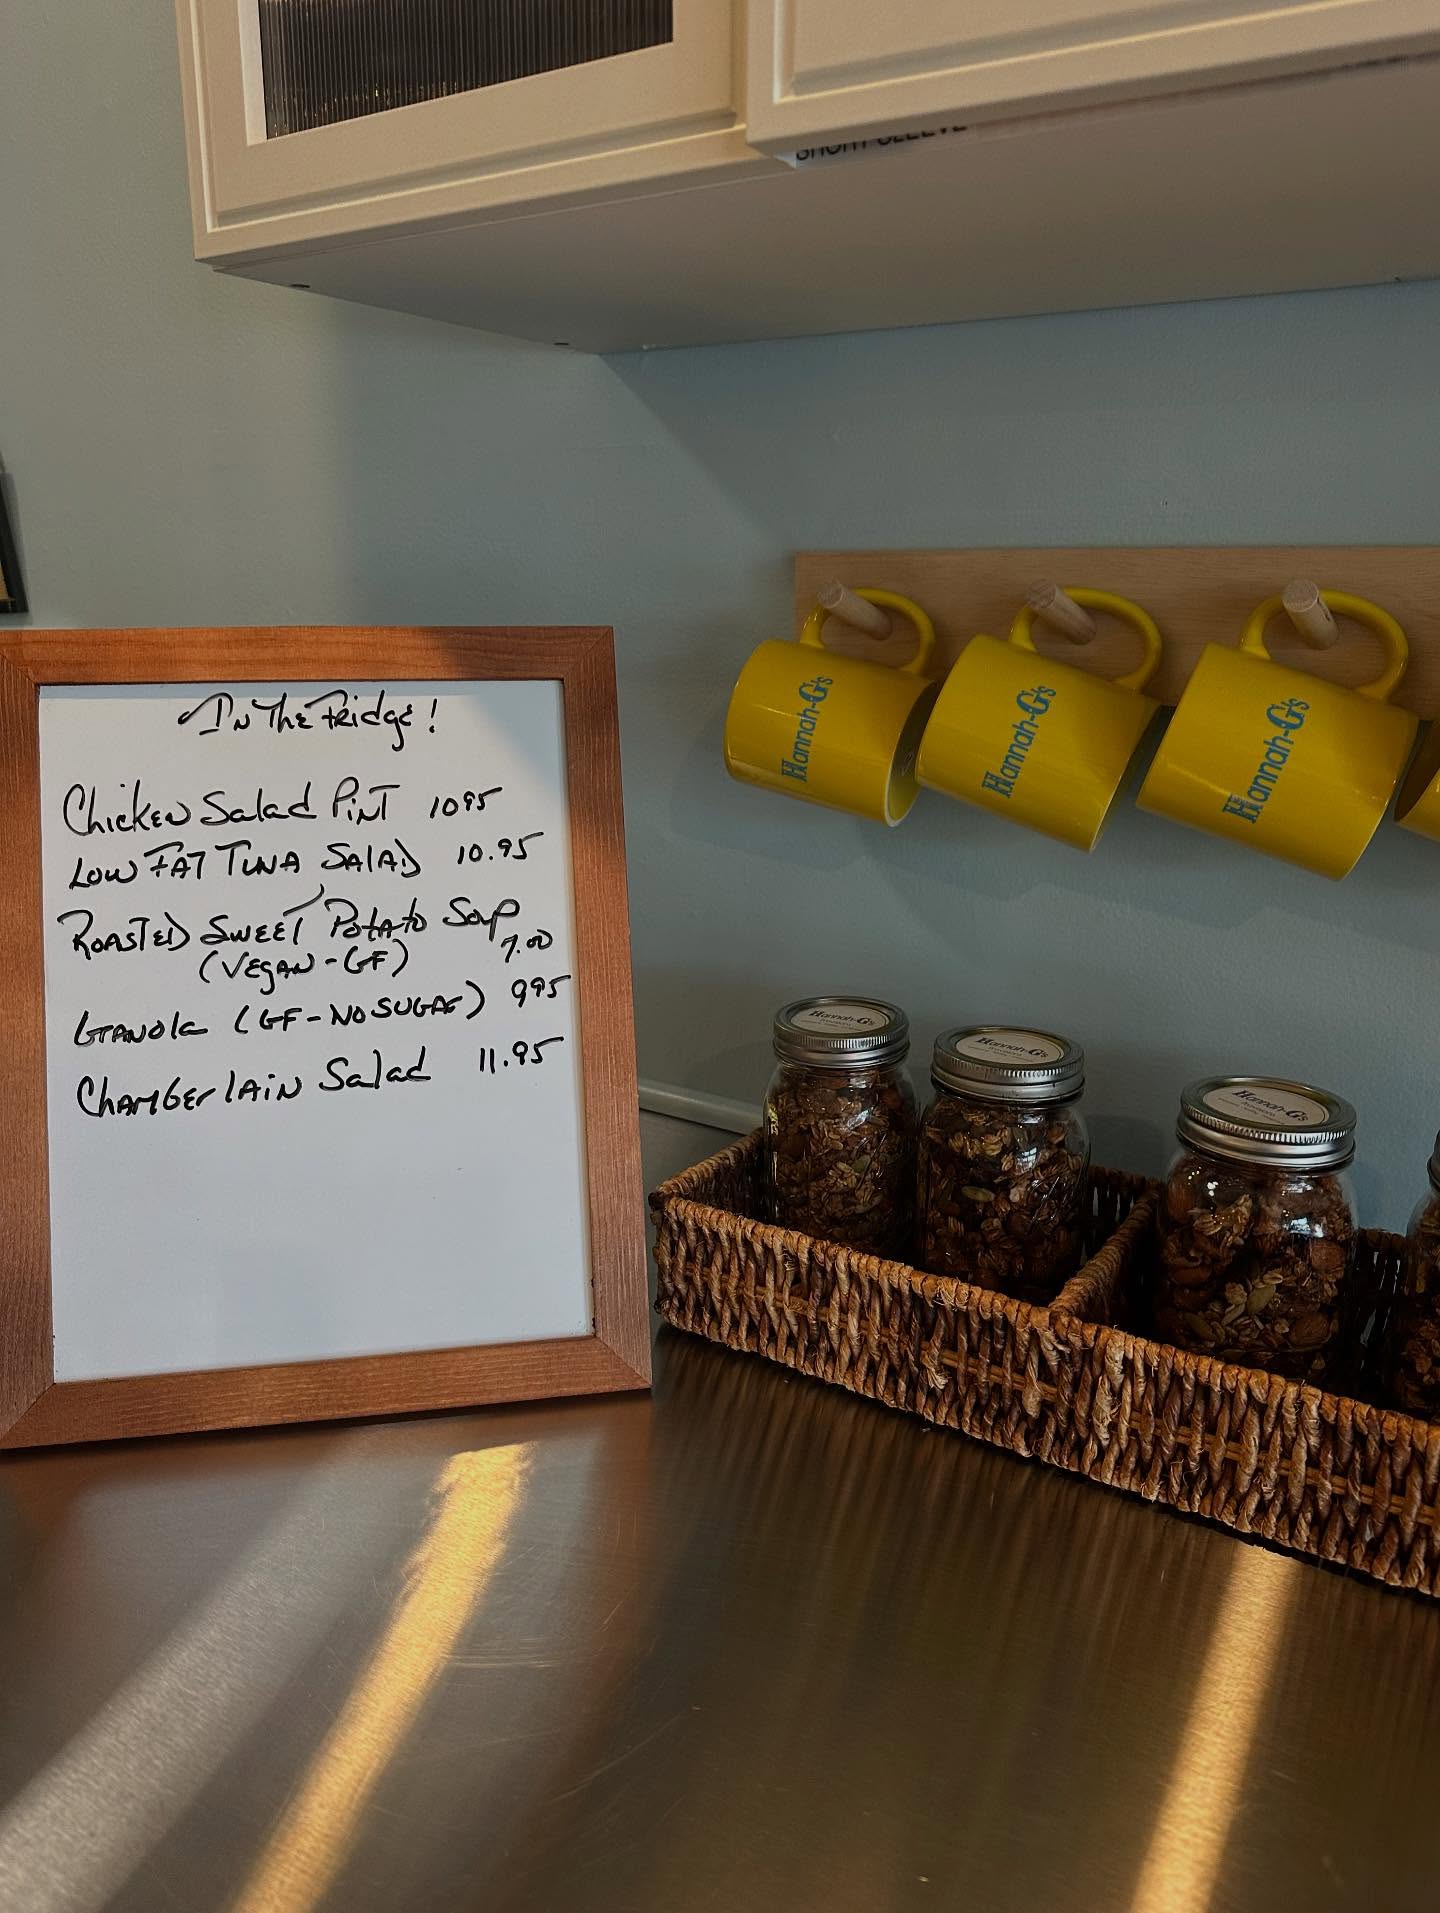 SHORT SLEEVE
In The Fridge!
Chicken Salad Pint 1095
Low Fat Tuna Salad 10.95
Roasted Sweet Potato Soup
7.00
(Vegan-GF)
Granola (GF-No Sugar) 995
Chamberlain Salad 11.95
Hannah-G's
Hannah-G's
Hannah-G's
Hannah-G's
Hannah-G's
Hannah-G's